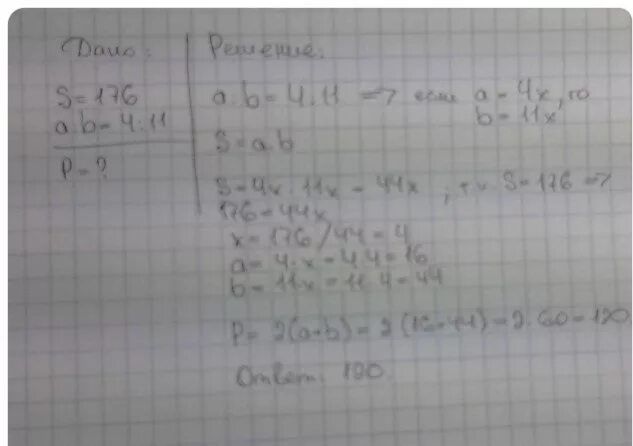 Дано:
S=176
a:b=4:11
P=?
Решение:
a:b=4:11 => если a=4x, то
b=11x
S=a·b
S=4x·11x=44x, т.к. S=176 =>
176=44x
x=176/44=4
a=4·x=4·4=16
b=11x=11·4=44
P=2(a+b)=2(16+44)=2·60=120.
Ответ: 120